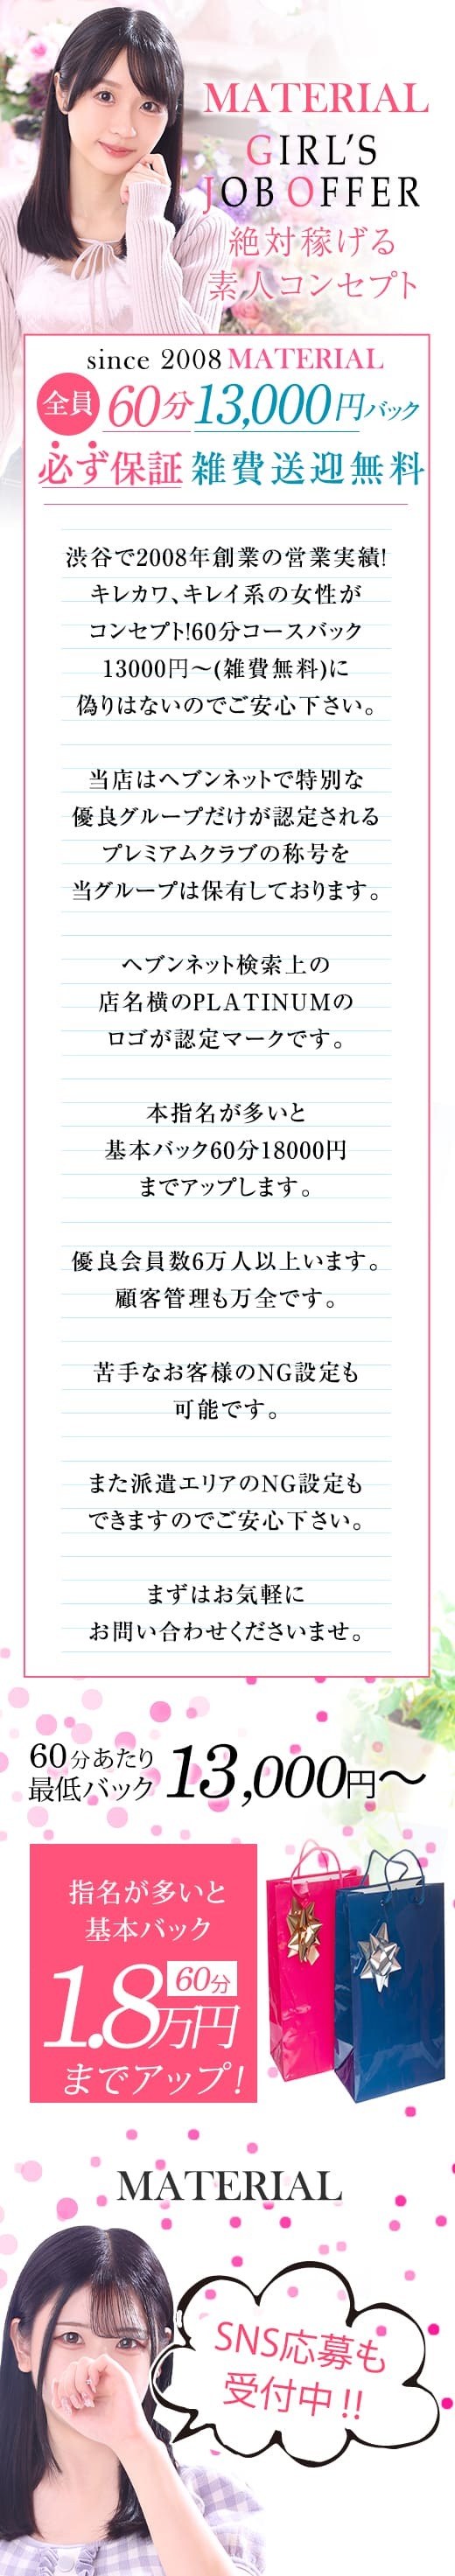 MATERIAL
GIRL'S
JOB OFFER
絶対稼げる
素人コンセプト
since 2008 MATERIAL
全員 60分 13,000円バック
必ず保証 雑費送迎無料
渋谷で2008年創業の営業実績!
キレカワ、キレイ系の女性が
コンセプト!60分コースバック
13000円～(雑費無料)に
偽りはないのでご安心下さい。
当店はヘブンネットで特別な
優良グループだけが認定される
プレミアムクラブの称号を
当グループは保有しております。
ヘブンネット検索上の
店名横のPLATINUMの
ロゴが認定マークです。
本指名が多いと
基本バック60分18000円
までアップします。
優良会員数6万人以上います。
顧客管理も万全です。
苦手なお客様のNG設定も
可能です。
また派遣エリアのNG設定も
できますのでご安心下さい。
まずはお気軽に
お問い合わせくださいませ。
60分あたり
最低バック 13,000円～
指名が多いと
基本バック
60分
1.8万円
までアップ!
MATERIAL
SNS応募も
受付中!!